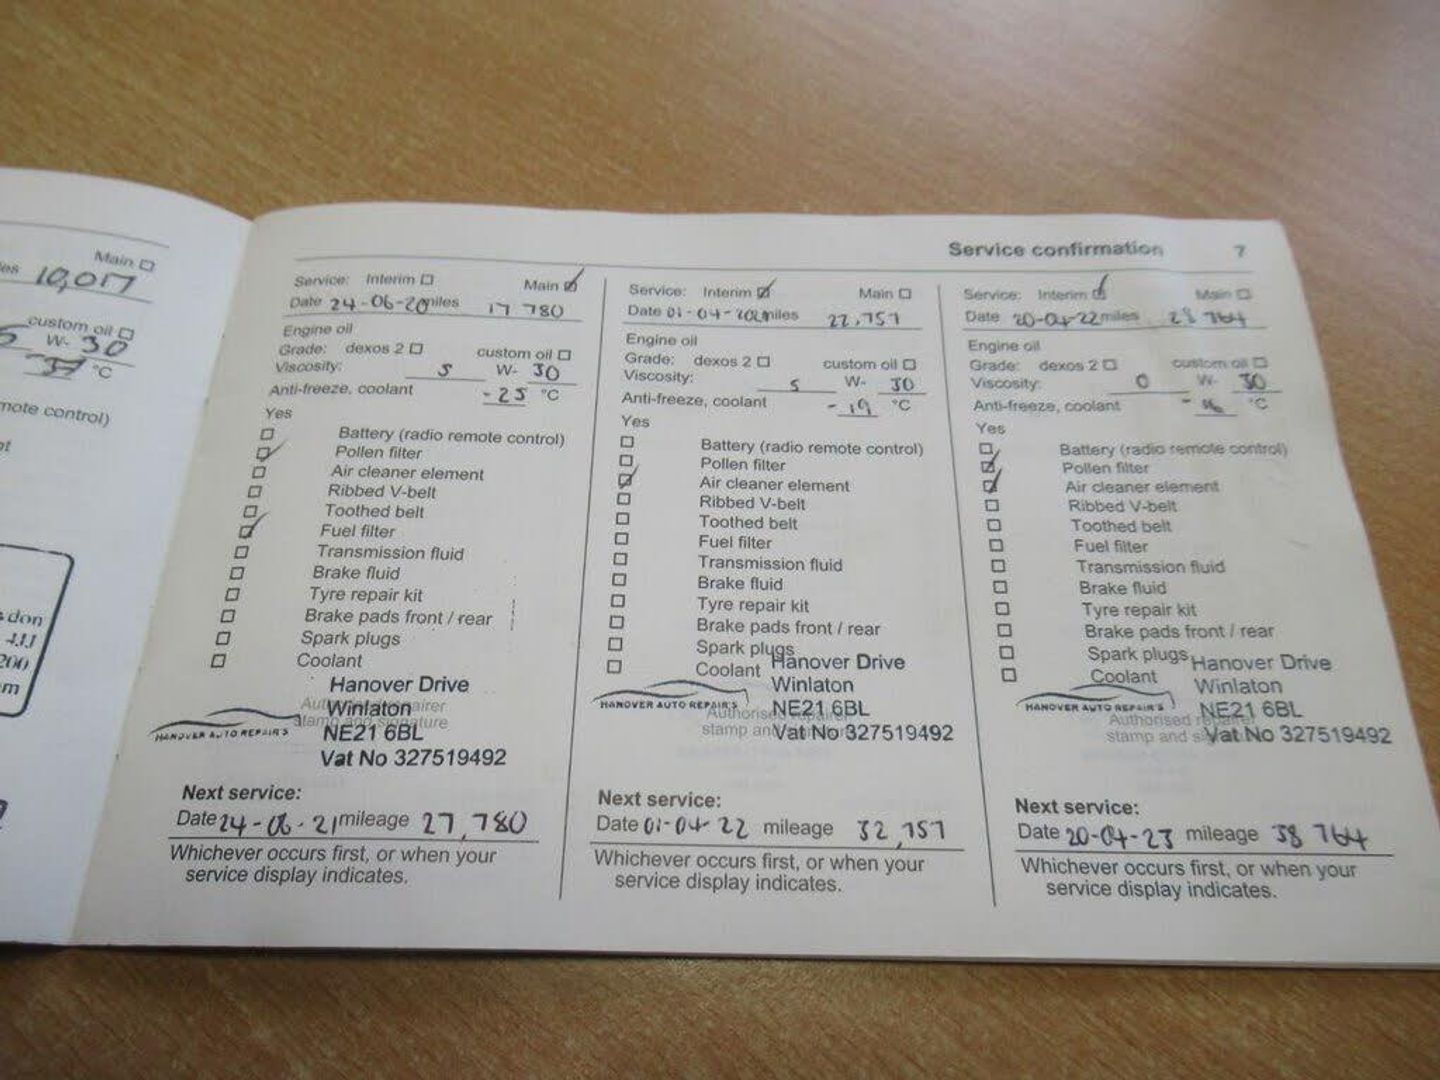 Main
10,017
custom oil
W- 30
°C
mote control)
don
411
200
m
Service confirmation 7
Service: Interim Main
Date 24-06-20 miles 17 780
Engine oil
Grade: dexos 2 custom oil
Viscosity: 5 W- 30
Anti-freeze, coolant -25 °C
Yes
Battery (radio remote control)
Pollen filter
Air cleaner element
Ribbed V-belt
Toothed belt
Fuel filter
Transmission fluid
Brake fluid
Tyre repair kit
Brake pads front / rear
Spark plugs
Coolant
Hanover Drive
Winlaton
NE21 6BL
Vat No 327519492
HANOVER AUTO REPAIR'S
stamp and signature
Next service:
Date 24-06-21 mileage 27,780
Whichever occurs first, or when your
service display indicates.
Service: Interim Main
Date 01-04-2021 miles 22,757
Engine oil
Grade: dexos 2 custom oil
Viscosity: 5 W- 30
Anti-freeze, coolant -19 °C
Yes
Battery (radio remote control)
Pollen filter
Air cleaner element
Ribbed V-belt
Toothed belt
Fuel filter
Transmission fluid
Brake fluid
Tyre repair kit
Brake pads front / rear
Spark plugs
Coolant
Hanover Drive
Winlaton
NE21 6BL
Vat No 327519492
HANOVER AUTO REPAIR'S
Authorised repairer
stamp and
Next service:
Date 01-04-22 mileage 32,757
Whichever occurs first, or when your
service display indicates.
Service: Interim Main
Date 20-04-22 miles 28 764
Engine oil
Grade: dexos 2 custom oil
Viscosity: 0 W- 30
Anti-freeze, coolant °C
Yes
Battery (radio remote control)
Pollen filter
Air cleaner element
Ribbed V-belt
Toothed belt
Fuel filter
Transmission fluid
Brake fluid
Tyre repair kit
Brake pads front / rear
Spark plugs
Coolant
Hanover Drive
Winlaton
NE21 6BL
Vat No 327519492
HANOVER AUTO REPAIR'S
Authorised repairer
stamp and
Next service:
Date 20-04-23 mileage 38 764
Whichever occurs first, or when your
service display indicates.